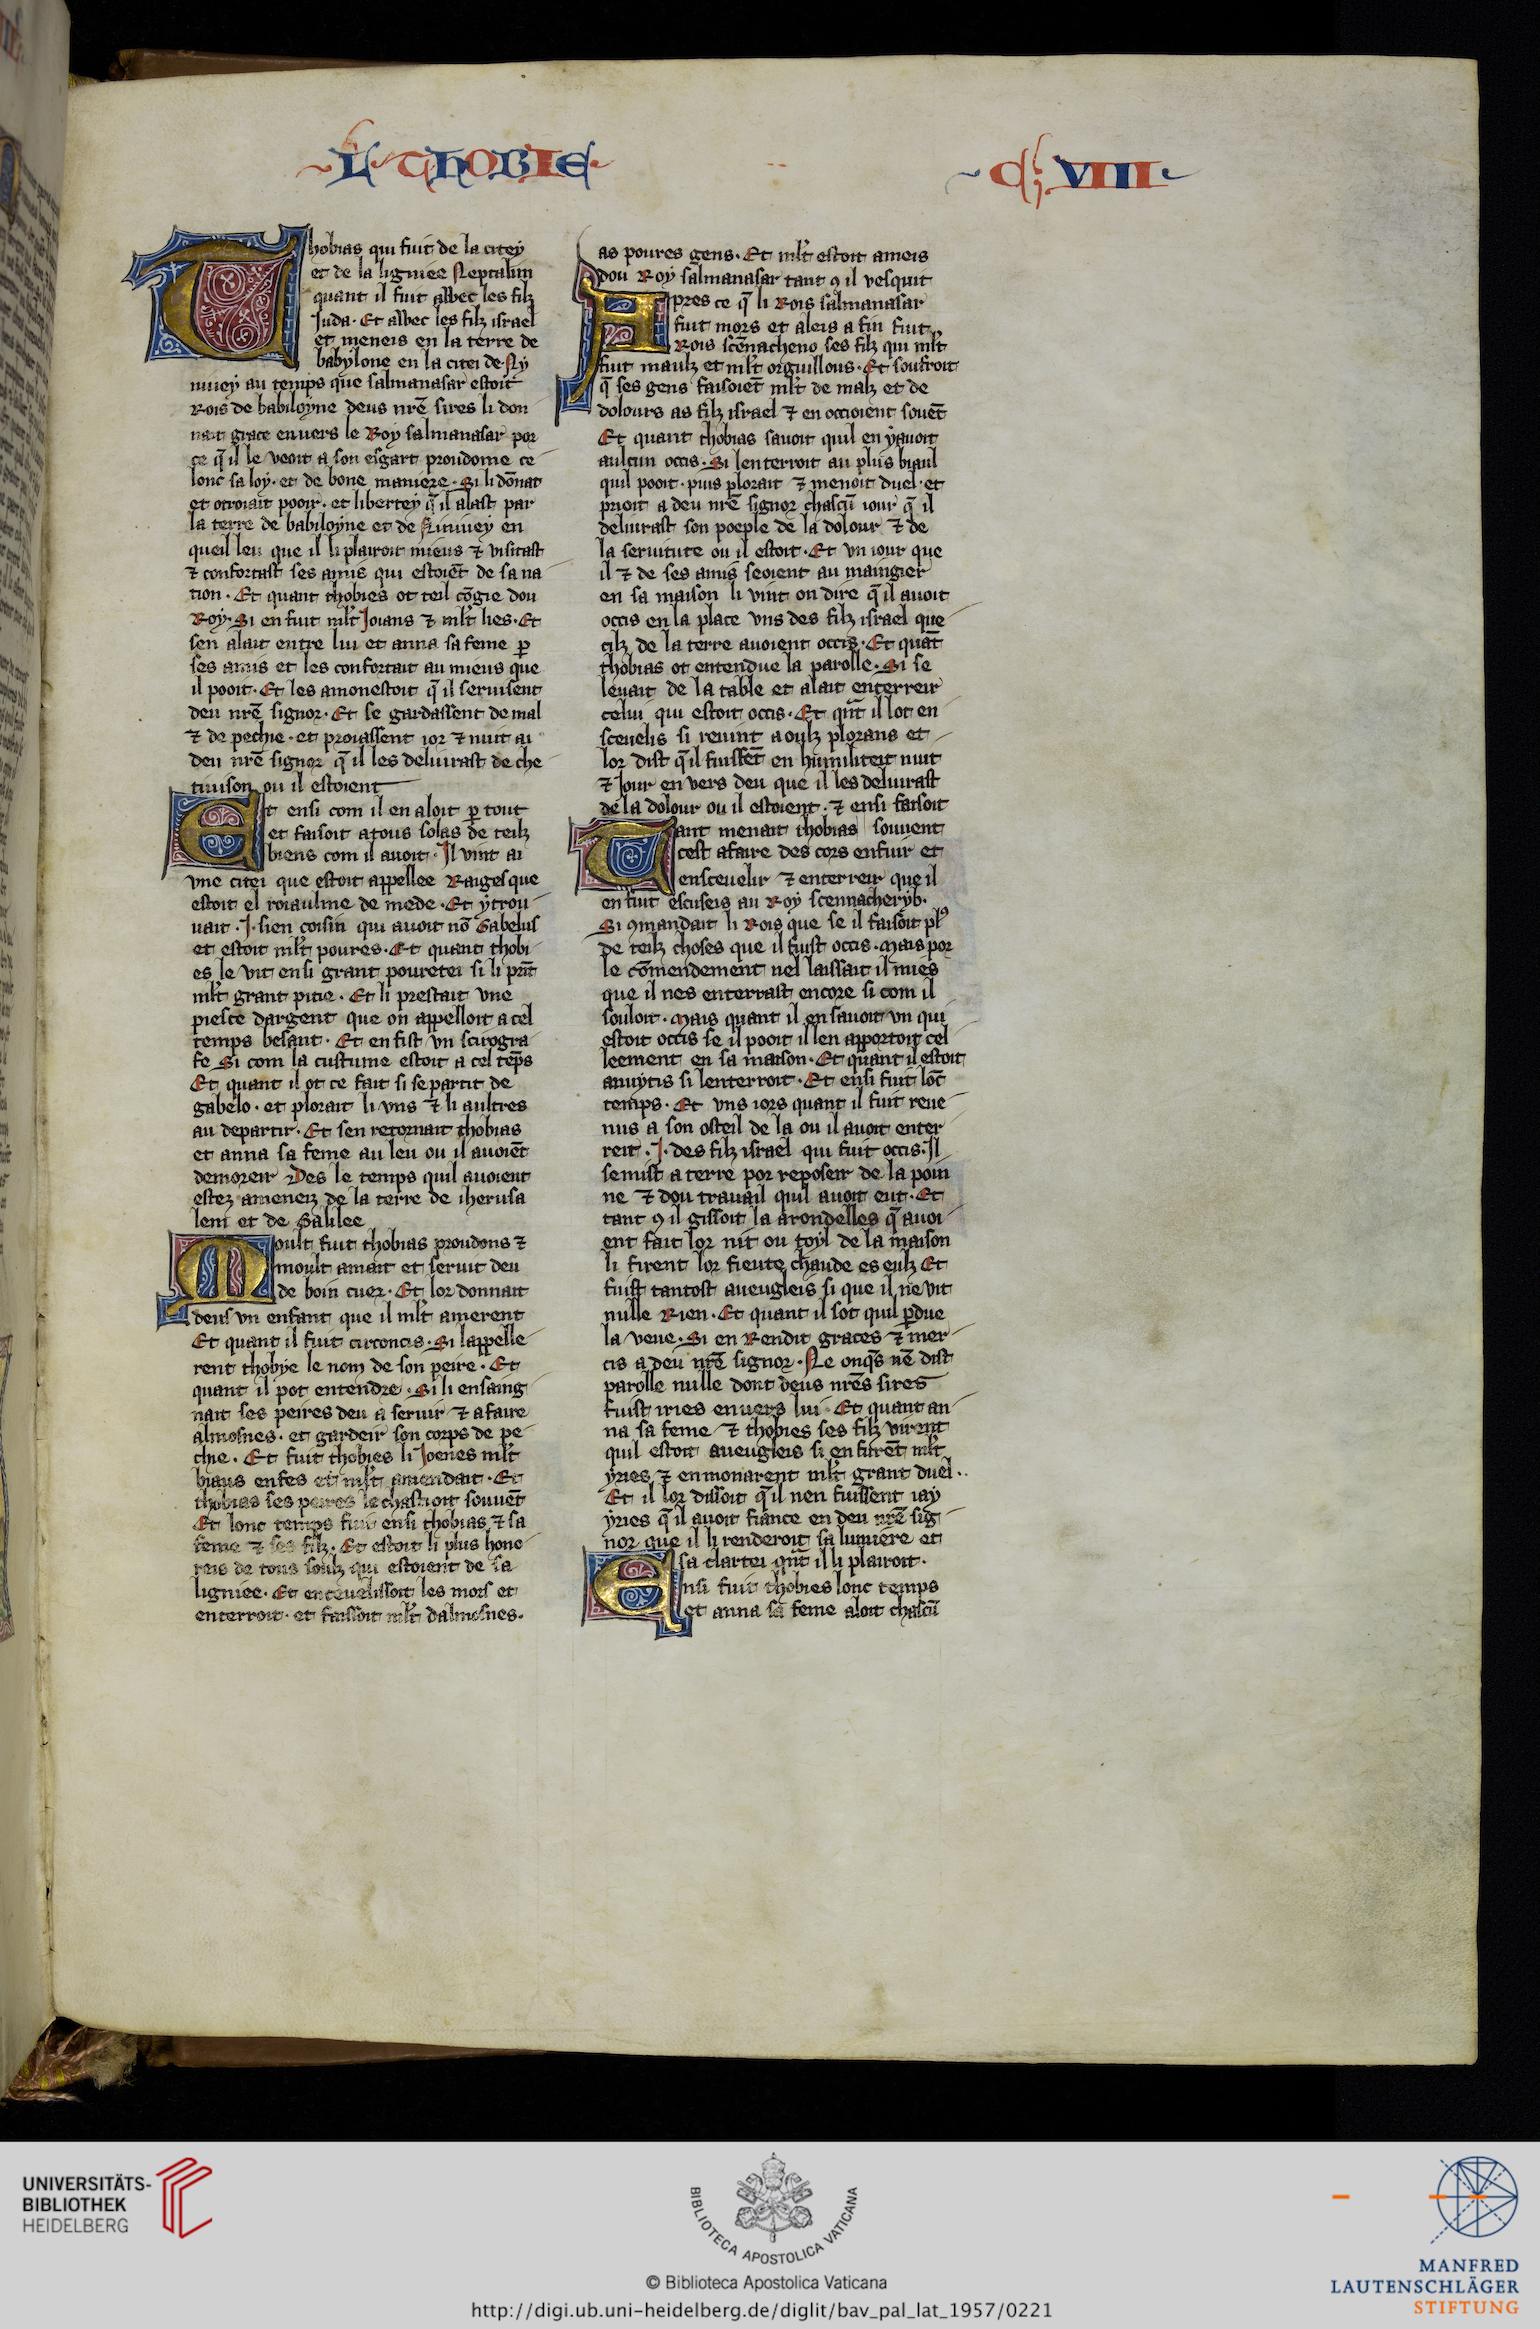 L THOBIE
C VIII
Thobias qui fuit de la citey
et de laligniee Neptalim
quant il fuit assec les filz
Juda. Et assec les filz israel
et meneis en la terre de
babylone en la citei de Ny
niuey au temps que salmanasar estoit
Rois de babiloyne deus nr̄e sires li don
nait grace enuers le Roy salmanasar por
ce q̄ il le veoit a son esgart proudome ce
lonc sa loy. et de bone maniere. Si li dōnat
et otroiait pooir. et libertey q̄ il alast par
la terre de babiloyne et de Niniuey en
queil leu que il li plairoit mieus ⁊ visitast
⁊ confortast ses amis qui estoiēt de sa na
tion. Et quant thobies ot teil cōgie dou
Roy. Si en fuit ml̄t Joians ⁊ ml̄t lies. Et
sen alait entre lui et anna sa feme ꝑ
ses amis et les confortait au mieus que
il pooit. Et les amonestoit q̄ il seruisent
deu nr̄e signor. Et se gardassent de mal
⁊ de pechie. et proiassent ior ⁊ nuit ai
deu nr̄e signor q̄ il les deliurast de che
tiuison ou il estoient
Et ensi com il en aloit ꝑ tout
et faisoit a tous solas de teilz
biens com il auoit. Il vint ai
vne citei que estoit appellee Raiges que
estoit el roiaulme de mede. Et y trou
uait .I. sien coisin qui auoit nō Gabelus
et estoit ml̄t poures. Et quant thobi
es le vit en si grant pouretei si li prīt
ml̄t grant pitie. Et li prestait vne
piesce dargent que on appelloit a cel
temps besant. Et en fist vn scirogra
fe Si com la custume estoit a cel tēps
Et quant il ot ce fait si se partit de
gabelo. et plorait li vns ⁊ li aultres
au departir. Et sen retornait thobias
et anna sa feme au leu ou il auoiēt
demoreir Des le temps quil auoient
estez ameneiz de la terre de iherusa
lem et de Galilee
Moult fuit thobias proudons ⁊
moult amait et seruit deu
de boin cuer. Et lor donnait
deus vn enfant que il ml̄t amerent
Et quant il fuit circoncis. Si lappelle
rent thobye le nom de son peire. Et
quant il pot entendre. Si li ensaing
nait ses peires deu a seruir ⁊ a faire
almosnes. et gardeir son corps de pe
chie. Et fuit thobies li Joenes ml̄t
biaus enfes et ml̄t amendait. Et
thobias ses peires le chastioit souuēt
Et lonc temps fuit ensi thobias ⁊ sa
feme ⁊ ses filz. Et estoit li plus hono
reis de tous soulz qui estoient de sa
ligniee. Et enceuelissoit les mors et
enterroit. et faissoit ml̄t dalmosnes.
as poures gens. Et ml̄t estoit ameis
dou Roy salmanasar tant ꝯ il vesquit
Apres ce q̄ li Rois salmanasar
fuit mors et aleis a fin fuit
Rois scēnacheno ses filz qui ml̄t
fuit maulz et ml̄t orguillous. Et souffroit
q̄ ses gens faisoiēt ml̄t de malz et de
dolours as filz israel ⁊ en occioient souēt
Et quant thobias sauoit quil en y auoit
aulcun occis. Si lenterroit au plus biaul
quil pooit. puis plorait ⁊ menoit duel. et
prioit a deu nr̄e signor chascū iour q̄ il
deliurast son poeple de la dolour ⁊ de
la seruitute ou il estoit. Et vn iour que
il ⁊ de ses amis seoient au maingier
en sa maison li vint on dire q̄ il auoit
occis en la place vns des filz israel que
cilz de la terre auoient occis. Et quāt
thobias ot entendue la parolle. Si se
leuait de la table et alait enterreir
celui qui estoit occis. Et qn̄t il lot en
sceuelis si reuint a oulz plorans et
lor dist q̄ il fuissēt en humiliteit nuit
⁊ Jour en vers deu que il les deliurast
de la dolour ou il estoient. ⁊ ensi faisoit
Tant menait thobias souuent
cest afaire des cors enfuir et
ensceuelir ⁊ enterreir que il
en fuit escuseis au Roy scennacheryb.
Si ꝯmandait li Rois que se il faisoit plꝰ
de teilz choses que il fuist occis. Mais por
le cōmendement nel laissait il mies
que il nes enterrast encore si com il
souloit. Mais quant il en sauoit vn qui
estoit occis se il pooit il len apportoit cel
leement en sa maison. Et quant il estoit
anuytis si lenterroit. Et ensi fuit lōc
temps. Et vns iors quant il fuit reue
nus a son osteil de la ou il auoit enter
reit .I. des filz israel qui fuit occis. Il
se mist a terre por reposeir de la poin
ne ⁊ dou trauail quil auoit eut. Et
tant ꝯ il gissoit la arondelles q̄ auoi
ent fait lor nit ou toyl de la maison
li firent lor fieute chaude es eulz Et
fuist tantost aueugleis si que il ne vit
nulle Rien. Et quant il sot quil ꝑdue
la veue. Si en Rendit graces ⁊ mer
cis a deu nr̄e signor. Ne onq̄s nē dist
parolle nulle dont deus nr̄es sires
fuist iries enuers lui. Et quant an
na sa feme ⁊ thobies ses filz virent
quil estoit aueugleis si en furēt ml̄t
yries ⁊ en monarent ml̄t grant duel.
Et il lor dissoit q̄ il nen fuissent iay
yries q̄ il auoit fiance en deu nr̄e sig
nor que il li renderoit sa lumiere et
sa clartei qn̄t il li plairoit.
Ensi fuit thobies lonc temps
et anna sa feme aloit chascū
UNIVERSITÄTS-
BIBLIOTHEK
HEIDELBERG
BIBLIOTECA APOSTOLICA VATICANA
© Biblioteca Apostolica Vaticana
http://digi.ub.uni-heidelberg.de/diglit/bav_pal_lat_1957/0221
MANFRED
LAUTENSCHLÄGER
STIFTUNG